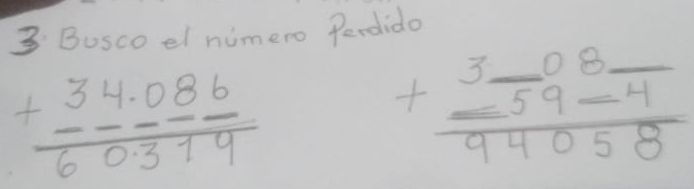 3. Busco el número Perdido
34.086
+ _ _ _ _ _
60.379
3 _ 0 8 _
+ _ 5 9 _ 4
94058